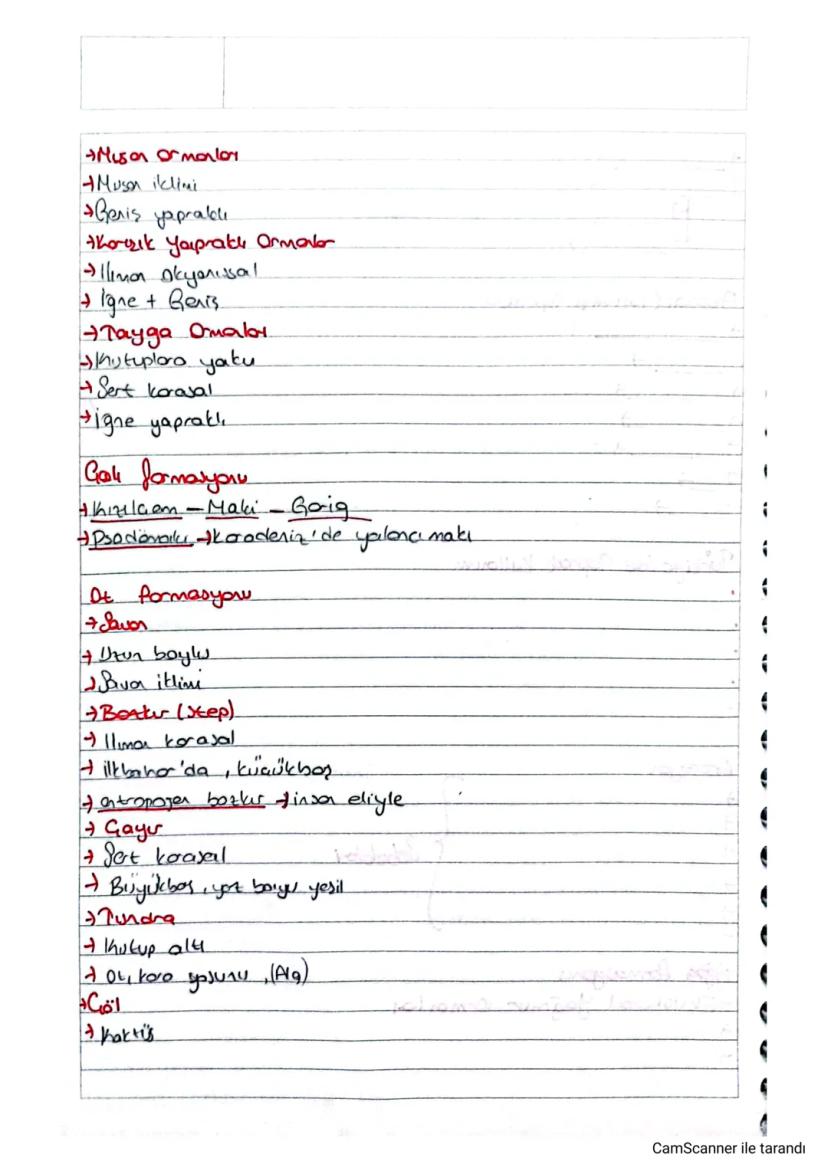 →Muson ormanları
→Muson iklimi
→Geniş yapraklı
→Karışık Yapraklı Ormanlar
→Ilıman Okyanusal
→ İğne + Geniş
→Tayga Ormanları
→Kutuplara yakın
→ Sert karasal
→iğne yapraklı
Çalı formasyonu
→Kızılçam – Maki – Garig
→Psödomaki →Karadeniz'de yalancı maki
Ot formasyonu
→Savan
→ Uzun boylu
→Savan iklimi
→Bozkır (step)
→ Ilıman karasal
→ ilkbahar'da , küçükbaş
→ antropojen bozkır →insan eliyle
→ Çayır
→ Sert karasal
→ Büyükbaş, yaz boyu yeşil
→Tundra
→ Kutup altı
→ Ot, kara yosunu ,(Alg)
→Çöl
→ Kaktüs
CamScanner ile tarandı